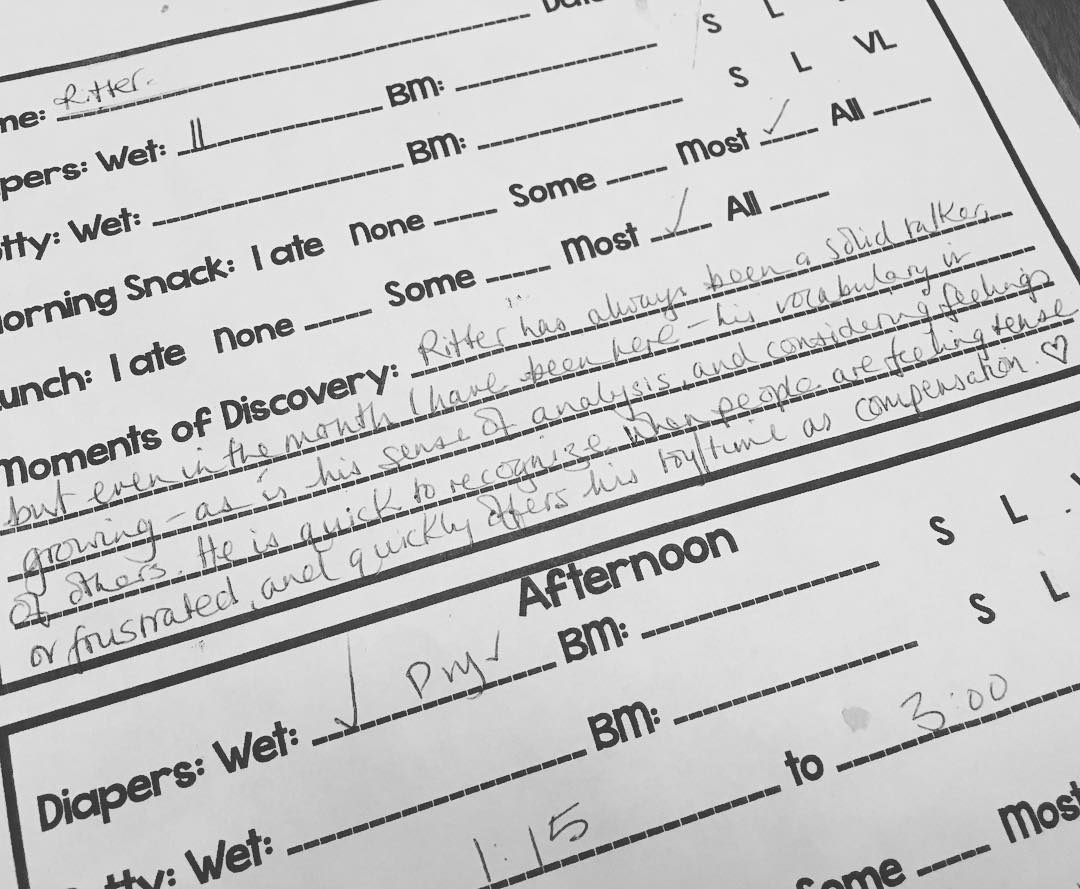 Date
me: Ritter
S L
pers: Wet: || BM: S L VL
tty: Wet: BM:
orning Snack: I ate None Some Most ✓ All
unch: I ate None Some Most ✓ All
Moments of Discovery: Ritter has always been a solid talker,
but even in the month I have been here – his vocabulary is
growing – as is his sense of analysis and considering feelings
of others. He is quick to recognize when people are feeling tense
or frustrated, and quickly offers his toy/time as compensation. ♡
Afternoon
Diapers: Wet: ✓ Dry ✓ BM: S L
tty: Wet: BM: S L
1:15 to 3:00
Some Most